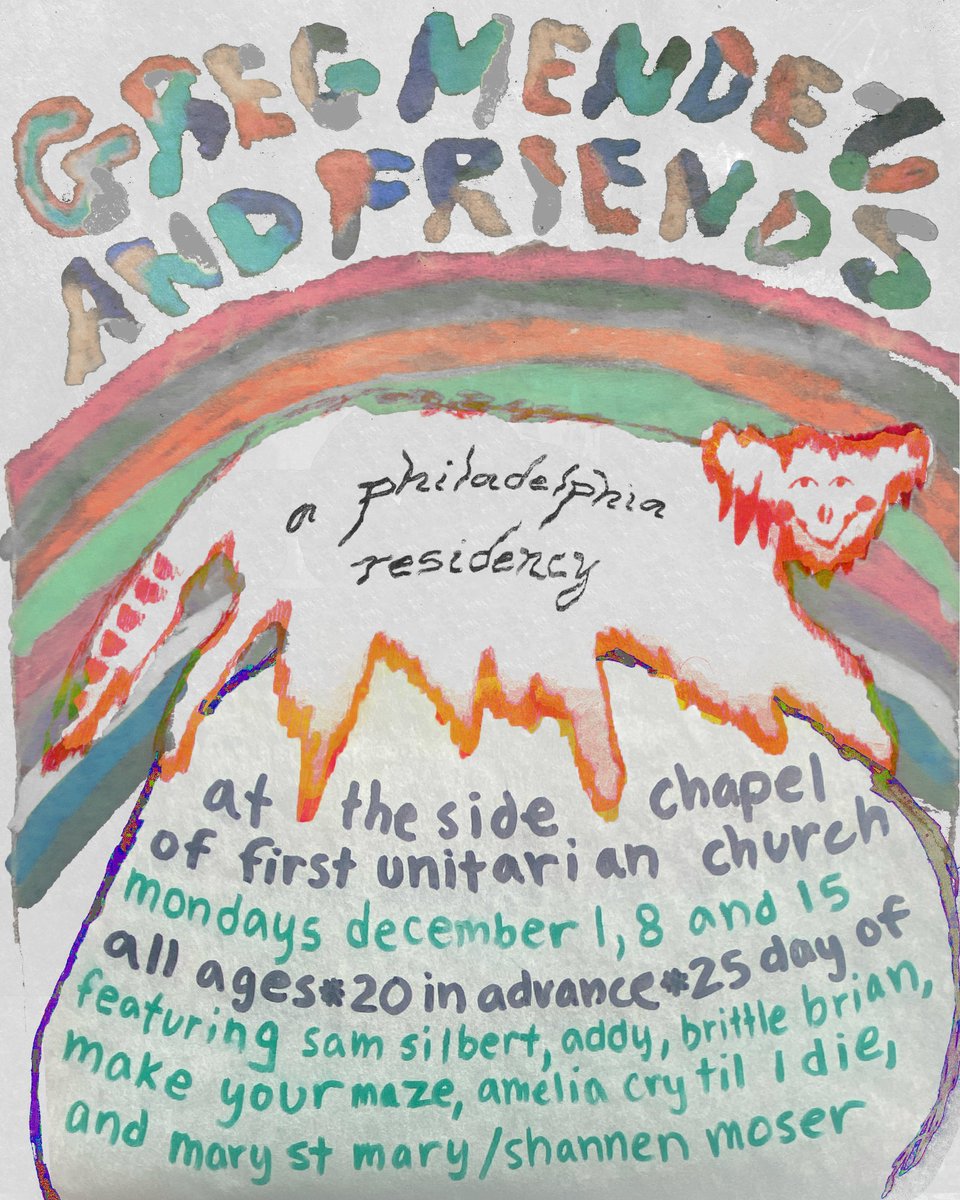 GREG MENDEZ
AND FRIENDS
a philadelphia
residency
at the side chapel
of first unitarian church
mondays december 1, 8 and 15
all ages*20 in advance*25 day of
featuring sam silbert, addy, brittle brian,
make your maze, amelia cry til I die,
and mary st mary/shannen moser